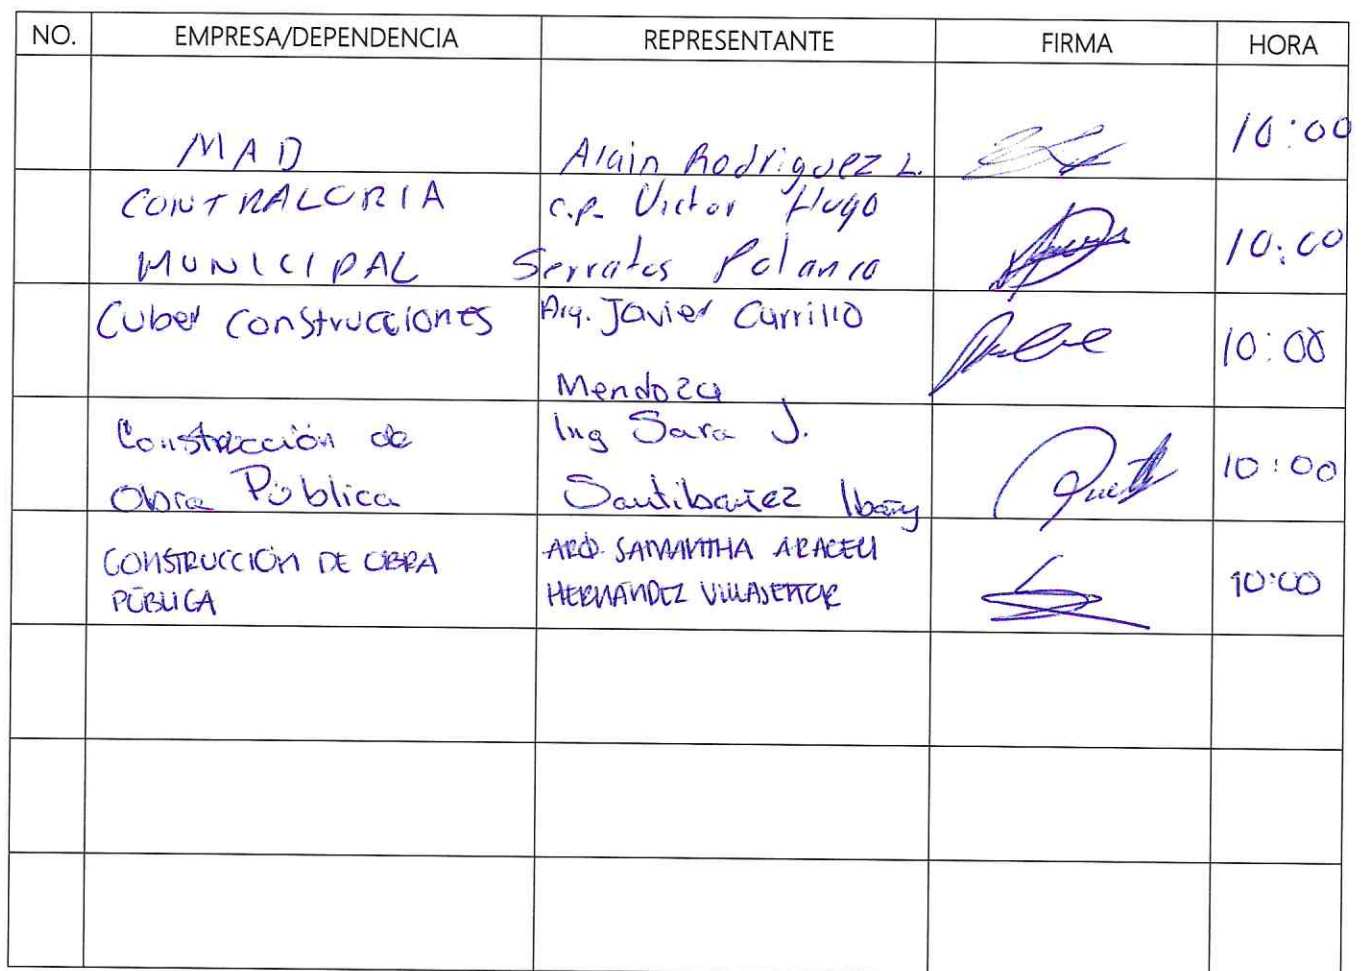 NO. EMPRESA/DEPENDENCIA REPRESENTANTE FIRMA HORA
MAD Alain Rodriguez L. 10:00
CONTRALORIA C.P. Victor Hugo
MUNICIPAL Serratos Polanco 10:00
Cuber Construcciones Arq. Javier Carrillo
Mendoza 10:00
Construcción de Ing Sara J.
Obra Pública Santibañez Ibañez 10:00
CONSTRUCCIÓN DE OBRA ARQ. SAMANTHA ARACELI
PÚBLICA HERNÁNDEZ VILLASEÑOR 10:00